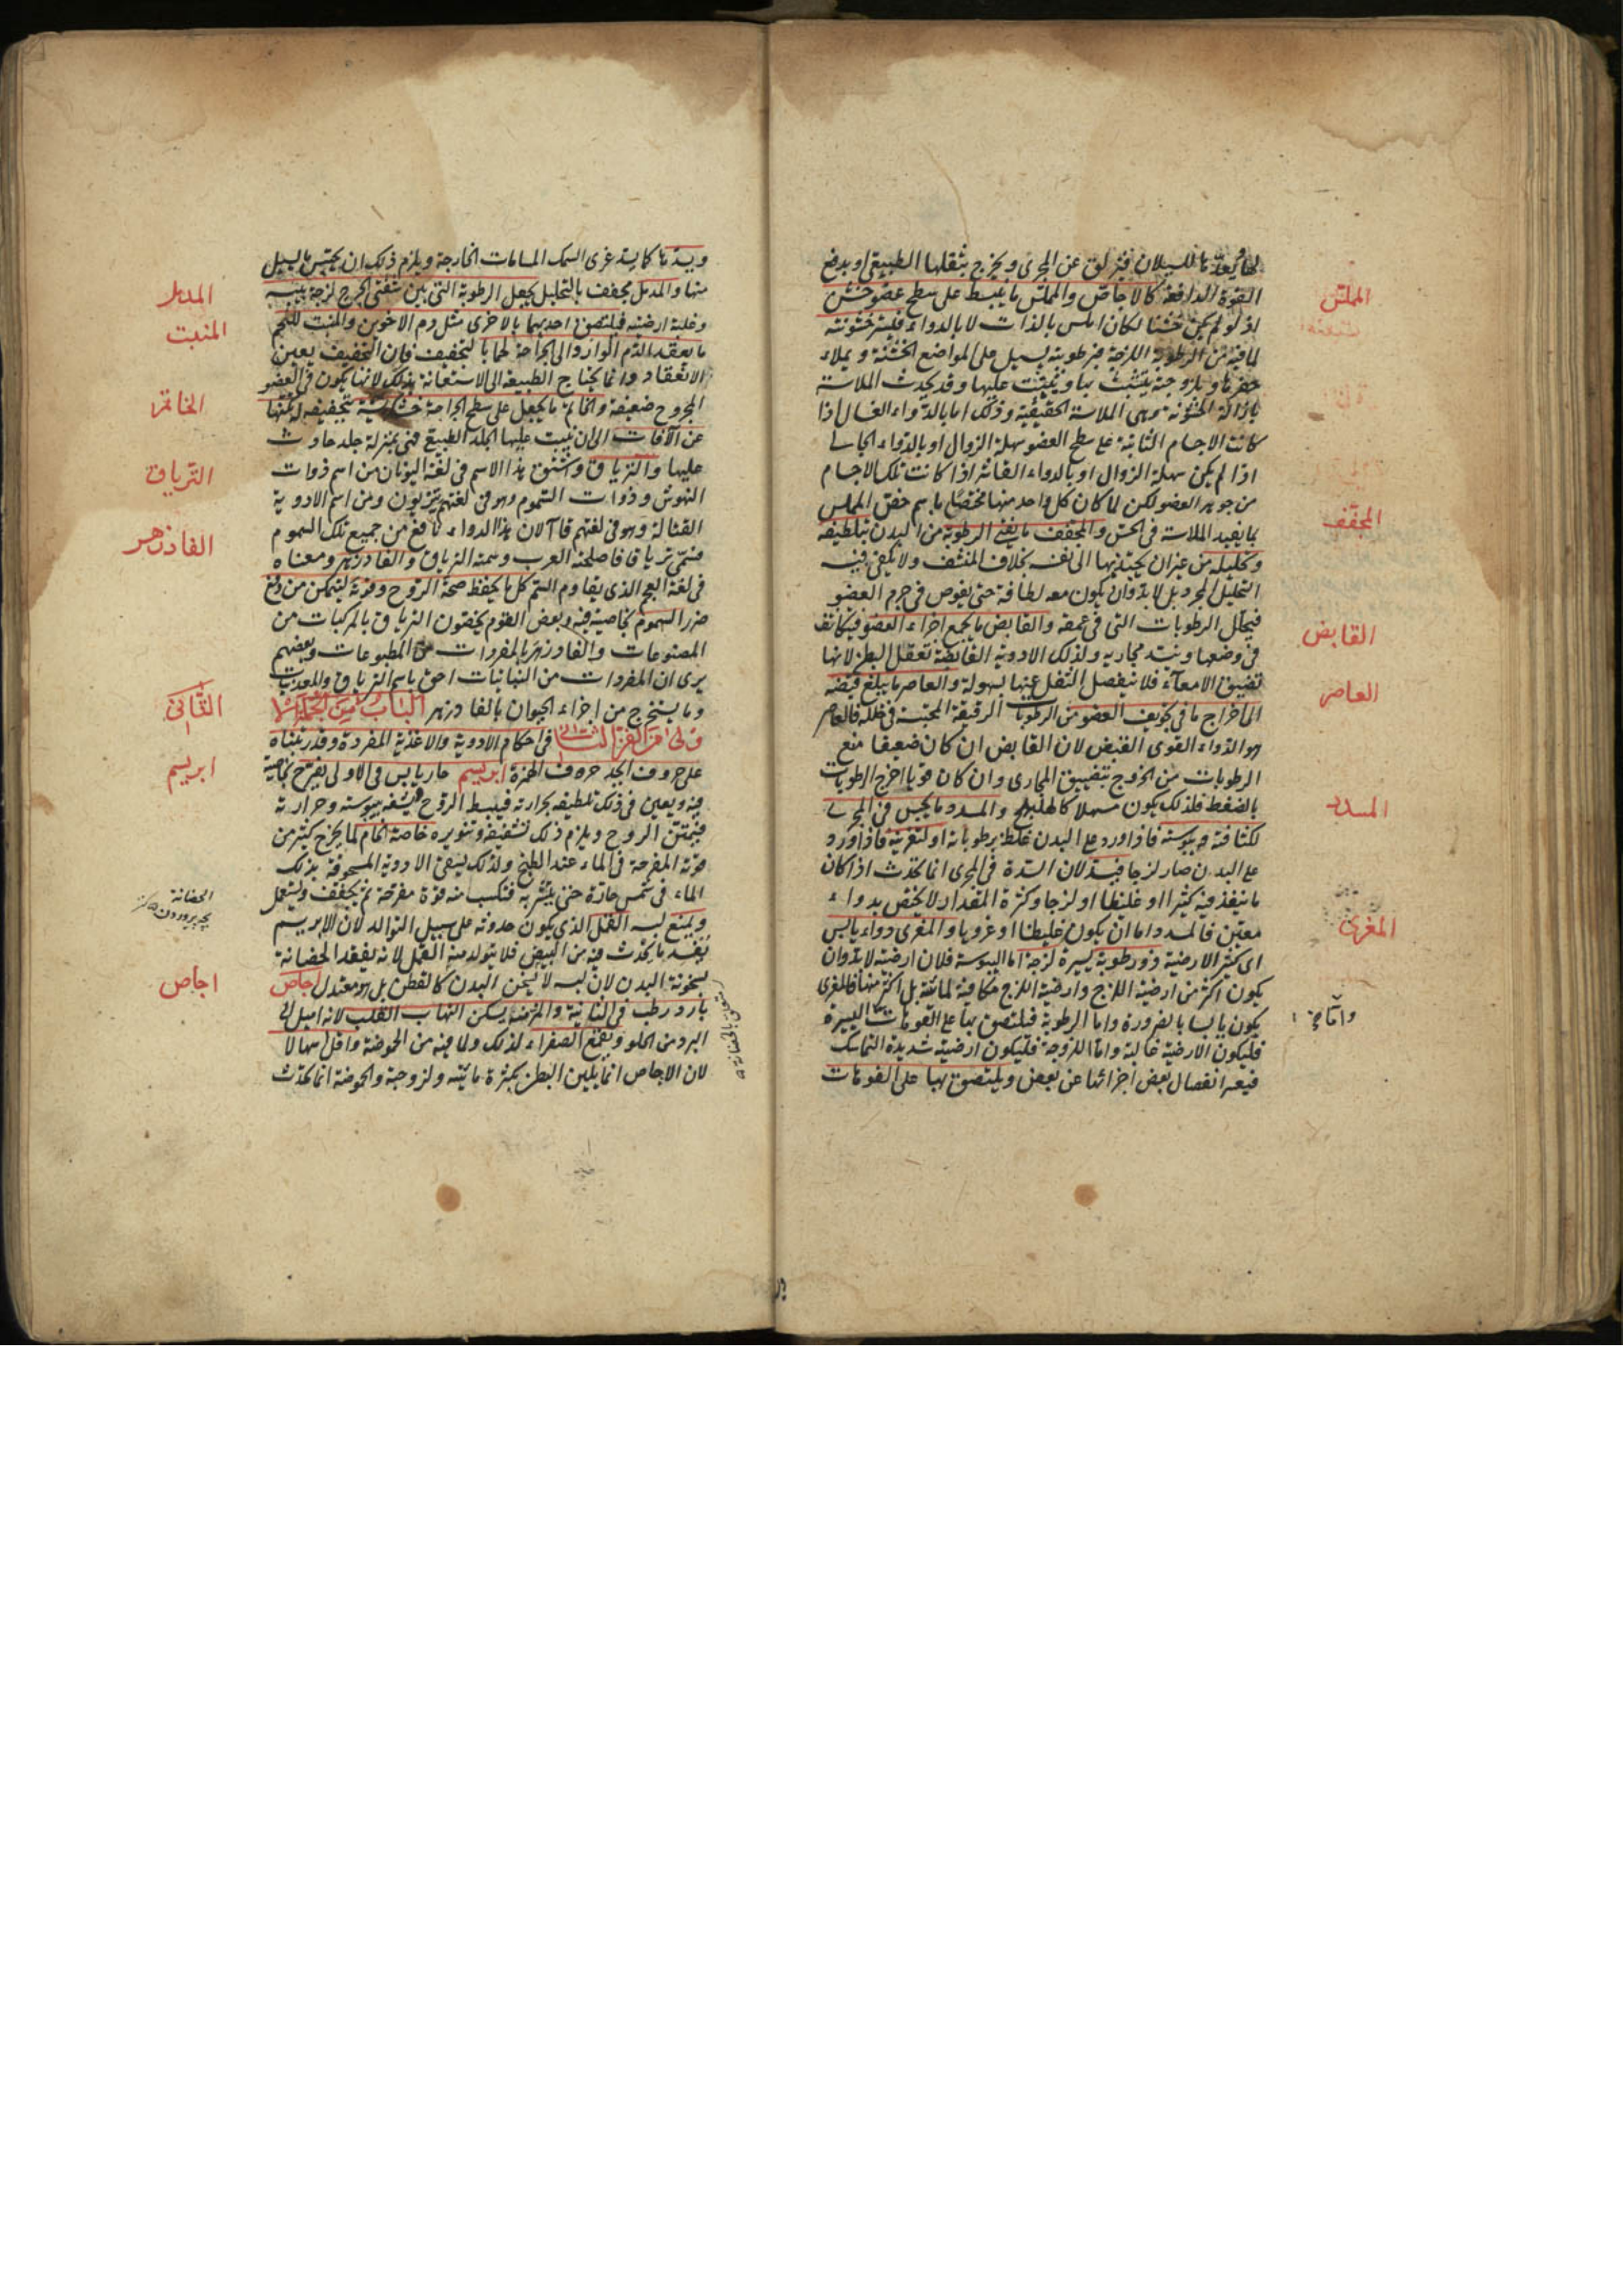 لها ويعدها للسيلان فيزلق عن المجرى ويخرج بثقلها الطبيعي او بدفع
القوة الدافعة كالاجاص والمملس ما ينبسط على سطح عضو خشن
اذ لو لم يكن خشنا لكان املس بالذات لا بالدواء فيستر خشونته
لما فيه من الرطوبة اللزجة فبرطوبته يسيل على المواضع الخشنة ويملاء
حفرها وبلزوجته يتشبث بها ويثبت عليها وقد يحدث الملاسة
بازالة الخشونة وهى الملاسة الحقيقية وذلك اما بالدواء الغسال اذا
كانت الاجسام الثابتة على سطح العضو سهلة الزوال او بالدواء الجالى
اذا لم يكن سهلة الزوال او بالدواء القاشر اذا كانت تلك الاجسام
من جوهر العضو لكن لما كان كل واحد منها مختصا باسم خص المملس
بما يفيد الملاسة فى الحس والمجفف ما يفنى الرطوبة من البدن بتلطيفه
وتحليله من غير ان يجتذبها الى نفسه بخلاف المنشف ولا يكفى فيه
التحليل المجرد بل لا بد وان يكون معه لطافة حتى يغوص فى جرم العضو
فيحلل الرطوبات التى فى عمقه والقابض ما يجمع اجزاء العضو فيتكاثف
فى وضعها وينسد مجاريه ولذلك الادوية القابضة تعقل البطن لانها
تضيق الامعاء فلا ينفصل الثفل عنها بسهولة والعاصر ما يبلغ قبضه
الى اخراج ما فى تجويف العضو من الرطوبات الرقيقة المحتبسة فى خلله فالعاصر
هو الدواء القوى القبض لان القابض ان كان ضعيفا منع
الرطوبات من الخروج بتضييق المجارى وان كان قويا اخرج الرطوبات
بالضغط فلذلك يكون مسهلا كالهليلج والمسدد ما يحبس فى المجرى
لكثافته ويبوسته فاذا ورد على البدن غلظ برطوباته او لتغريته فاذا ورد
على البدن صار لزجا فيسد لان السدة فى المجرى انما تحدث اذا كان
ما ينفذ فيه كثيرا او غليظا او لزجا وكثرة المقدار لا يختص بدواء
معين فالمسدد اما ان يكون غليظا او غرويا والمغرى دواء يابس
اى كثير الارضية ذو رطوبة يسيرة لزجة اما اليبوسة فلان ارضيته لا بد وان
يكون اكثر من ارضية اللزج وارضية اللزج مكافية لمائيته بل اكثر منها فالمغرى
يكون يابسا بالضرورة واما الرطوبة فيلتصق بها على الفوهات اليسيرة
فليكون الارضية غالبة واما اللزوجة فليكون ارضيته شديدة التماسك
فيعسر انفصال بعض اجزائها عن بعض ويلتصق بها على الفوهات
المملس
المجفف
القابض
العاصر
المسدد
المغرى
ويسدها كما يسد غرى السمك المسامات الخارجة ويلزم ذلك ان يحتبس ما يسيل
منها والمدمل مجفف بالتحليل يجعل الرطوبة التى بين شفتى الجرح لزجة بيبسه
وغلبة ارضيته فيلتصق احديهما بالاخرى مثل دم الاخوين والمنبت للحم
ما يعقد الدم الوارد الى الجراحة لحما بالتجفيف فان التجفيف يعين
الانعقاد وانما يحتاج الطبيعة الى الاستعانة بذلك لانها يكون فى العضو
المجروح ضعيفة والخاتم ما يجعل على سطح الجراحة خشكريشة بتجفيفه ليكنها
عن الآفات الى ان ينبت عليها الجلد الطبيعى فهى بمنزلة جلد حادث
عليها والترياق وشتق هذا الاسم فى لغة اليونان من اسم ذوات
النهوش وذوات السموم وهو فى لغتهم تيريون ومن اسم الادوية
القتالة وهو فى لغتهم قاآ لان هذا الدواء نافع من جميع تلك السموم
فسمى ترياقا فاصلحته العرب وسمته الترياق والفادزهر ومعناه
فى لغة العجم الذى يقاوم السم كل ما يحفظ صحة الروح وقوته ليتمكن من دفع
ضرر السموم بخاصية فيه وبعض القوم يخصون الترياق بالمركبات من
المصنوعات والفادزهر بالمفردات من المطبوعات وبعضهم
يرى ان المفردات من النباتيات احق باسم الترياق والمعدنيات
وما يستخرج من اجزاء الحيوان بالفادزهر الباب الثانى من الجملة الاولى
من الفن الثانى فى احكام الادوية والاغذية المفردة وقد رتبناه
على حروف ابجد حرف الهمزة ابريسم حار يابس فى الاولى يفرح بخاصية
فيه ويعين فى ذلك تلطيفه بحرارته فيبسط الروح وينشفه بيبوسته وحرارته
فيمتن الروح ويلزم ذلك تشفيفه وتنويره خاصة الخام لما يخرج كثير من
قوته المفرحة فى الماء عند الطبخ ولذلك يسقى الادوية المسحوقة بذلك
الماء فى شمس حارة حتى يتشربه فتكسب منه قوة مفرحة ثم يجفف ويستعمل
ويمنع لبسه القمل الذى يكون حدوثه على سبيل التوالد لان الابريسم
يفسد ما يحدث فيه من البيض فلا يتولد منه القمل لانه يفقد الحضانة
بسخونة البدن لان لبسه لا يسخن البدن كالقطن بل هو معتدل اجاص
بارد رطب فى الثانية والمز منه يسكن التهاب القلب لانه اميل الى
البرد من الحلو ويقمع الصفراء لذلك ولما فيه من الحموضة واقل اسهالا
لان الاجاص انما يلين البطن بكثرة مائيته ولزوجته والحموضة انما تحدث
المدمل
المنبت
الخاتم
الترياق
الفادزهر
الثانى
ابريسم
الحضانة
اجاص